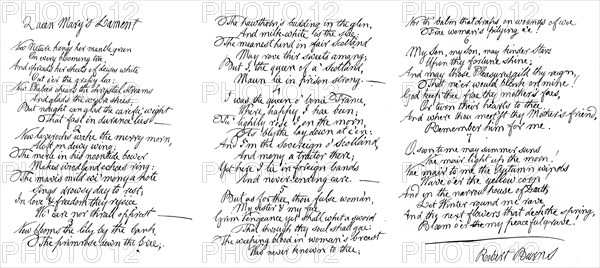 Queen Mary's Lament
Now Nature hangs her mantle green
On every blooming tree,
And spreads her sheets of daisies white
Out o'er the grassy lea:
Now Phœbus chears the chrystal streams
And glads the azure skies;
But nought can glad the wight
That fast in durance lies —
2
Now laverocks wake the merry morn,
Aloft on dewy wing;
The merle in his noontide bower
Makes woodland echoes ring;
The mavis mild wi' mony a note
Sings drowsy day to rest;
In love & freedom they rejoice
Wi' care nor thrall opprest —
3
Now blooms the lily by the bank
The primrose down the brae;
The hawthorn's budding in the glen,
And milk-white is the slae:
The meanest hind in fair Scotland
May rove their sweets amang;
But I, the queen o' a' Scotland,
Maun lie in prison strang —
4
I was the queen o' bonie France,
Where happy I hae been;
Fu' lightly rose I on the morn,
As blythe lay down at e'en:
And I'm the Sovereign o' Scotland,
And mony a traitor there;
Yet here I lie in foreign bands
And never-ending care —
5
But as for thee, thou false woman,
My sister & my fae
Grim Vengeance yet shall whet a sword
That through thy soul shall gae:
The weeping blood in woman's breast
Was never known to thee;
Nor th' balm that draps on wounds of woe
Frae woman's pitying e'e!
6
My son, my son, may kinder Stars
Upon thy fortune shine;
And may those pleasures gild thy reign,
That ne'er wad blink on mine.
God keep thee frae thy mother's faes,
Or turn their hearts to thee:
And where thou meet'st thy Mother's friend,
Remember him for me.
O, soon to me may summer suns
Nae mair light up the morn!
Nae mair to me the Autumn winds
Wave o'er the yellow corn!
And in the narrow house o' Death
Let Winter round me rave,
And the next flowers that deck the spring,
Bloom o'er the my peaceful grave. —
Robert Burns
PHOTO12